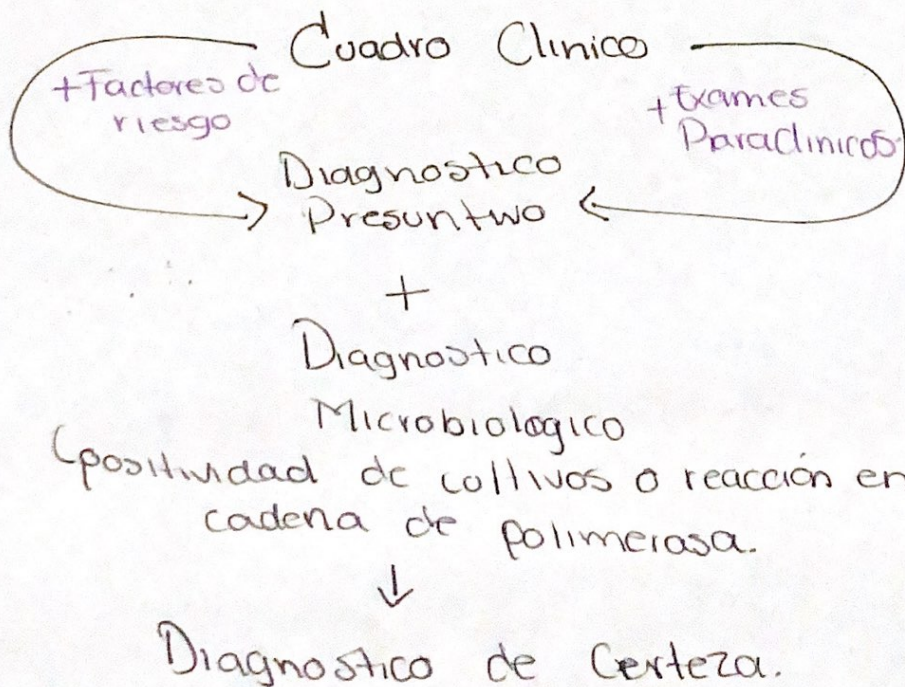 Cuadro Clinico
+Factores de
riesgo
+ Exames
Paraclinicos
Diagnostico
Presuntivo
+
Diagnostico
Microbiologico
(positividad de coltivos o reacción en
cadena de polimerasa.
↓
Diagnostico de Certeza.